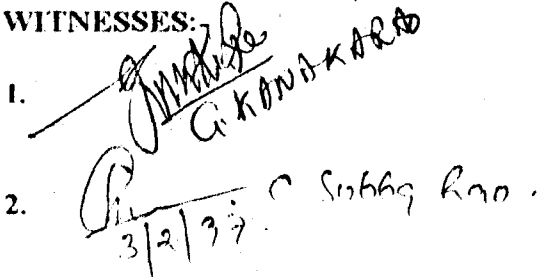 WITNESSES:-
1.
G. KANAKARAO
2. C Subba Rao.
3/2/37